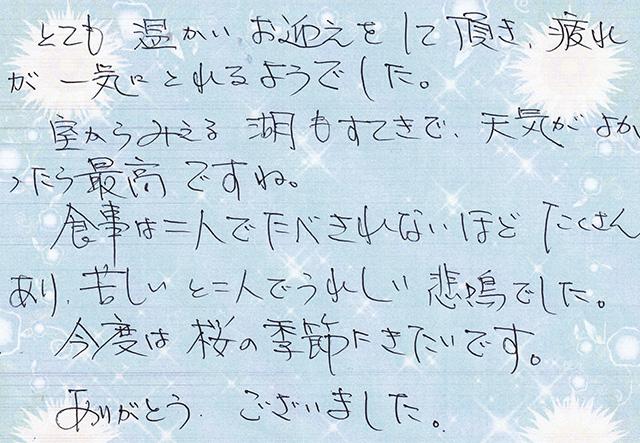 とても 温かい お迎えをして頂き、疲れ
が 一気に とれるようでした。
室からみえる 湖もすてきで、天気がよか
ったら最高ですね。
食事は二人でたべきれないほど たくさん
あり、苦しいと二人でうれしい 悲鳴でした。
今度は桜の季節にきたいです。
ありがとう ございました。